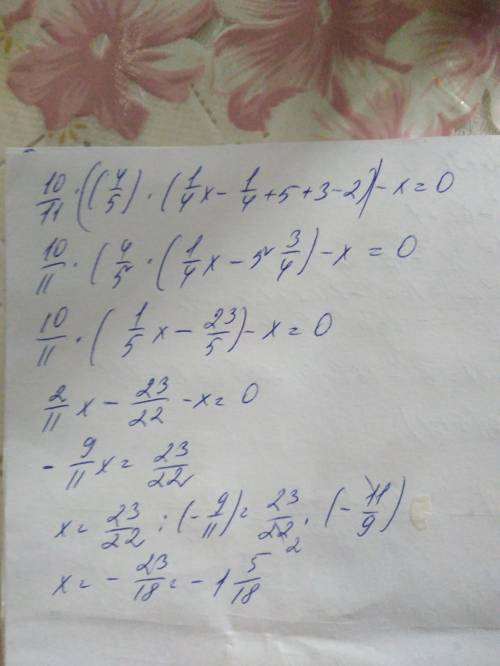 10/11 · ((4/5) · (1/4x - 1/4 + 5 + 3 - 2)) - x = 0
10/11 · (4/5 · (1/4x - 5 3/4) - x = 0
10/11 · (1/5x - 23/5) - x = 0
2/11x - 23/22 - x = 0
- 9/11x = 23/22
x = 23/22 : (- 9/11) = 23/22 2 · (- 11/9)
x = - 23/18 = - 1 5/18